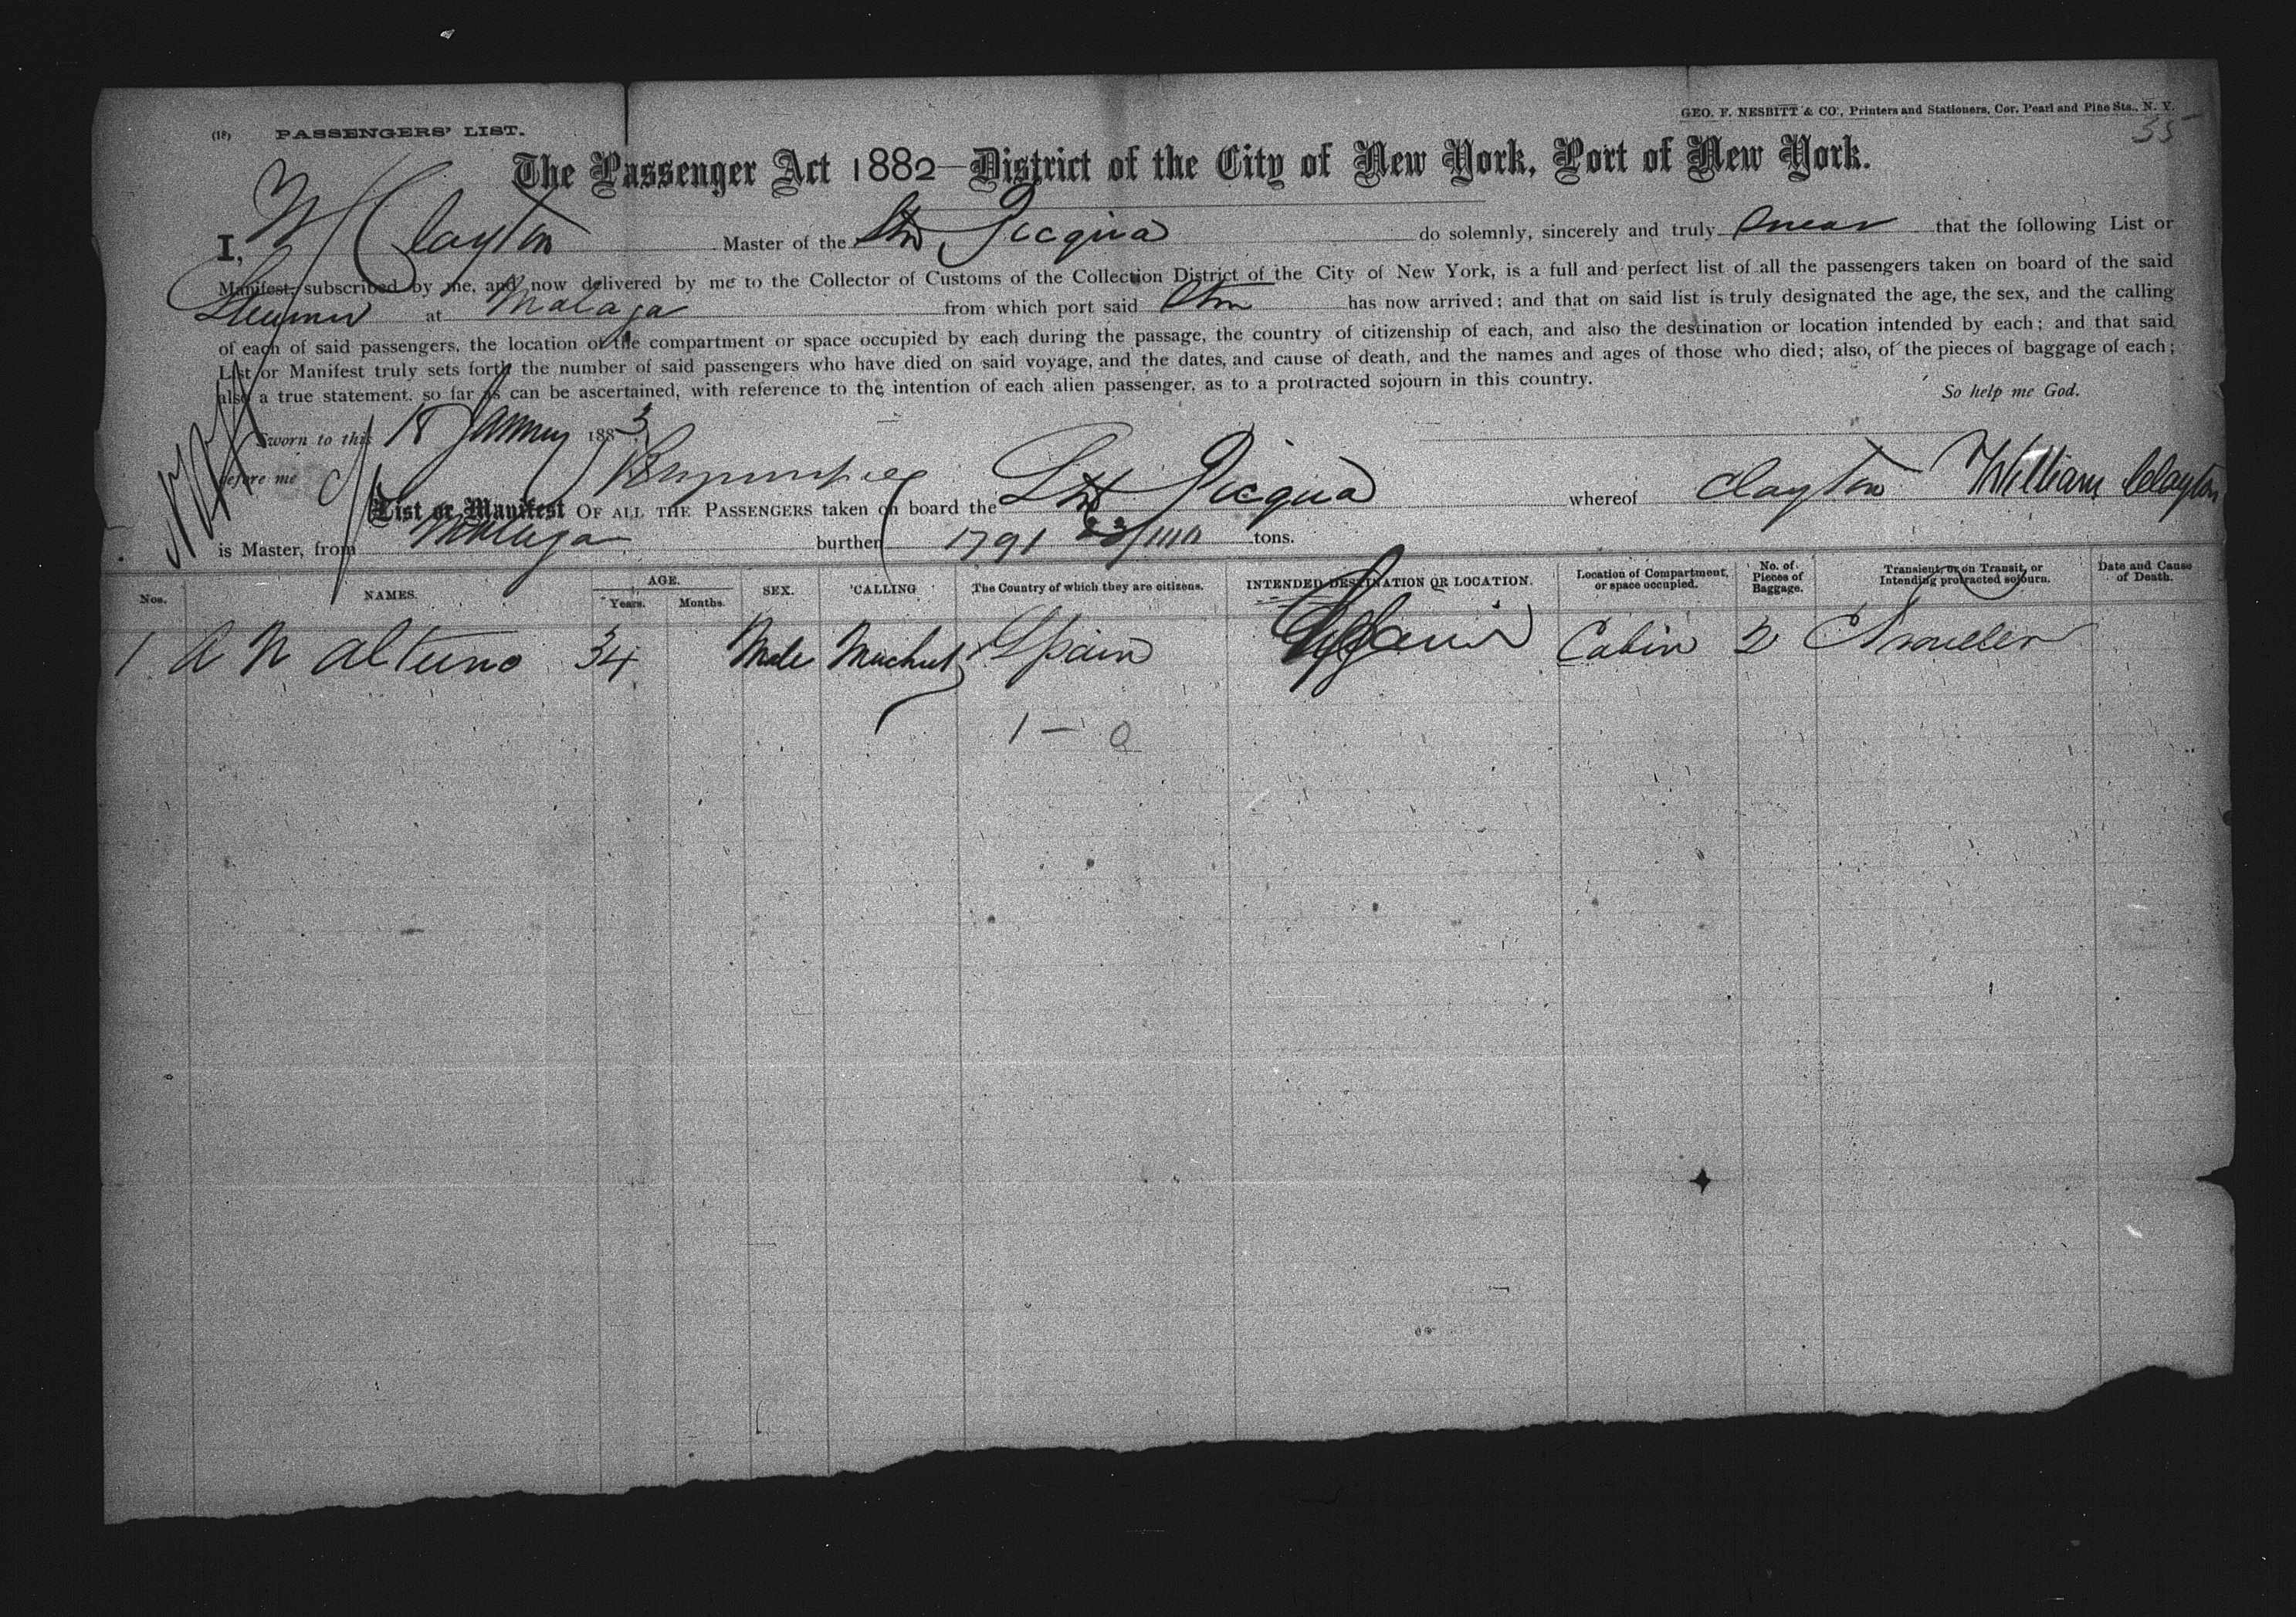 GEO. F. NESBITT & CO., Printers and Stationers, Cor. Pearl and Pine Sts., N. Y.
(18) PASSENGERS' LIST.
35
The Passenger Act 1882—District of the City of New York, Port of New York.
I, W Clayton Master of the Str Picqua do solemnly, sincerely and truly swear that the following List or
Manifest, subscribed by me, and now delivered by me to the Collector of Customs of the Collection District of the City of New York, is a full and perfect list of all the passengers taken on board of the said
Steamer at Malaga from which port said Str has now arrived; and that on said list is truly designated the age, the sex, and the calling
of each of said passengers, the location of the compartment or space occupied by each during the passage, the country of citizenship of each, and also the destination or location intended by each; and that said
List or Manifest truly sets forth the number of said passengers who have died on said voyage, and the dates, and cause of death, and the names and ages of those who died; also, of the pieces of baggage of each;
also a true statement, so far as can be ascertained, with reference to the intention of each alien passenger, as to a protracted sojourn in this country. So help me God.
Sworn to this 18 January 1883
before me
William Clayton
List or Manifest OF ALL THE PASSENGERS taken on board the Str Picqua whereof Clayton
is Master, from Malaga burthen 1791 tons.
Nos. NAMES. AGE. Years. Months. SEX. CALLING The Country of which they are citizens. INTENDED DESTINATION OR LOCATION. Location of Compartment, or space occupied. No. of Pieces of Baggage. Transient, or on Transit, or Intending protracted sojourn. Date and Cause of Death.
1 A N Altuno 34 Male Machist Spain Cabin 2 Traveller
1 — 0